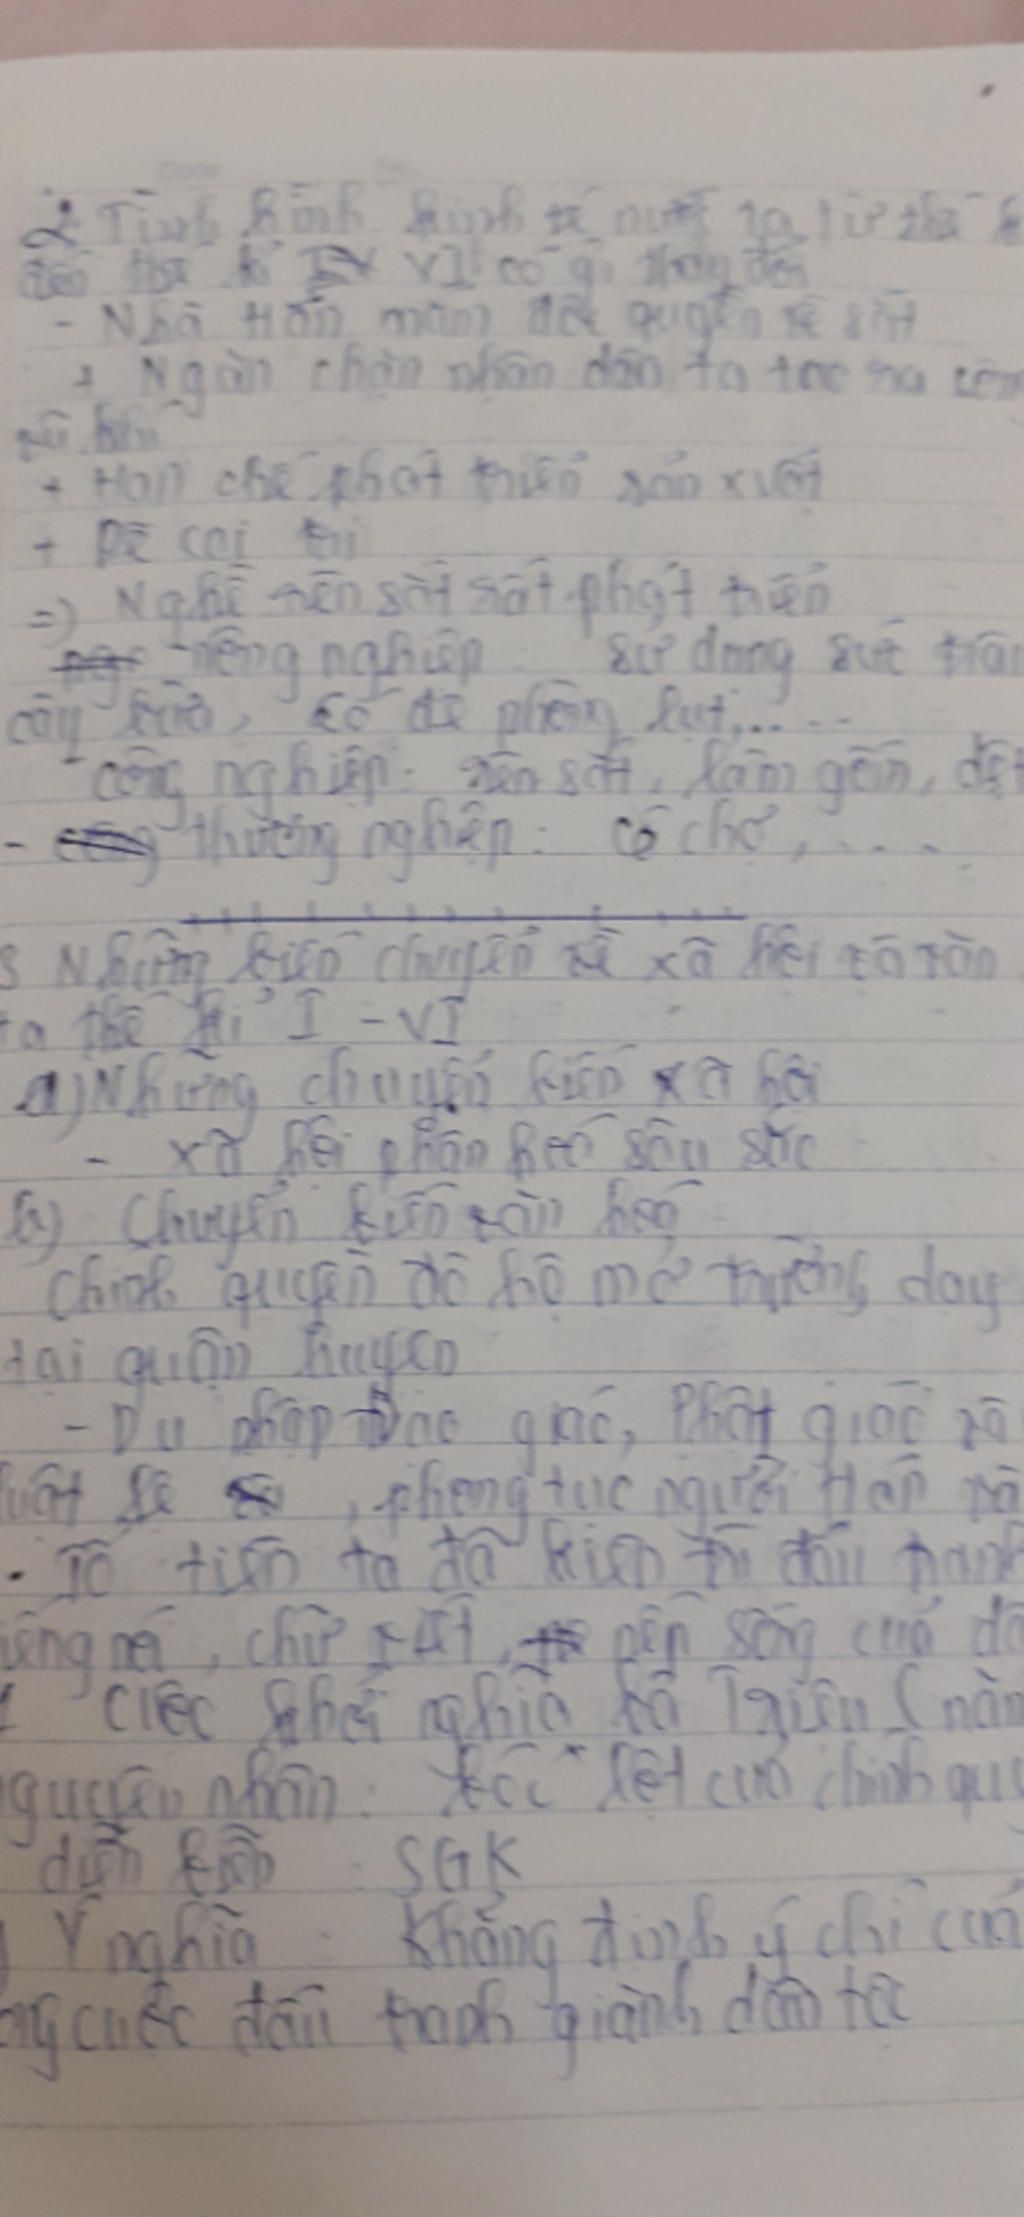 2. Tình hình kinh tế nước ta từ thế k
đến thế kỉ VI có gì thay đổi
- Nhà Hán nắm độc quyền về sắt
+ Ngăn chặn nhân dân ta tạo ra
vũ khí
+ Hạn chế phát triển sản xuất
+ Dễ cai trị
=> Nghề rèn sắt rất phát triển
- nông nghiệp sử dụng sức trâu
cày bừa, có đê phòng lụt,.....
- công nghiệp: rèn sắt, làm gốm, dệt
- thương nghiệp: có chợ, ....
3 Những biến chuyển về xã hội và văn
ta thế kỉ I - VI
a) Những chuyển biến xã hội
- xã hội phân hoá sâu sắc
b) Chuyển biến văn hoá
Chính quyền đô hộ mở trường dạy
tại quận huyện
- Du nhập Đạo giáo, Phật giáo và
luật lệ, phong tục người Hán và
- Tổ tiên ta đã kiên trì đấu tranh
tiếng nói, chữ viết, nếp sống của dâ
Cuộc khởi nghĩa Bà Triệu (năm
nguyên nhân: bóc lột của chính quy
diễn biến: SGK
Ý nghĩa: Khẳng định ý chí của
cuộc đấu tranh giành dân tộc